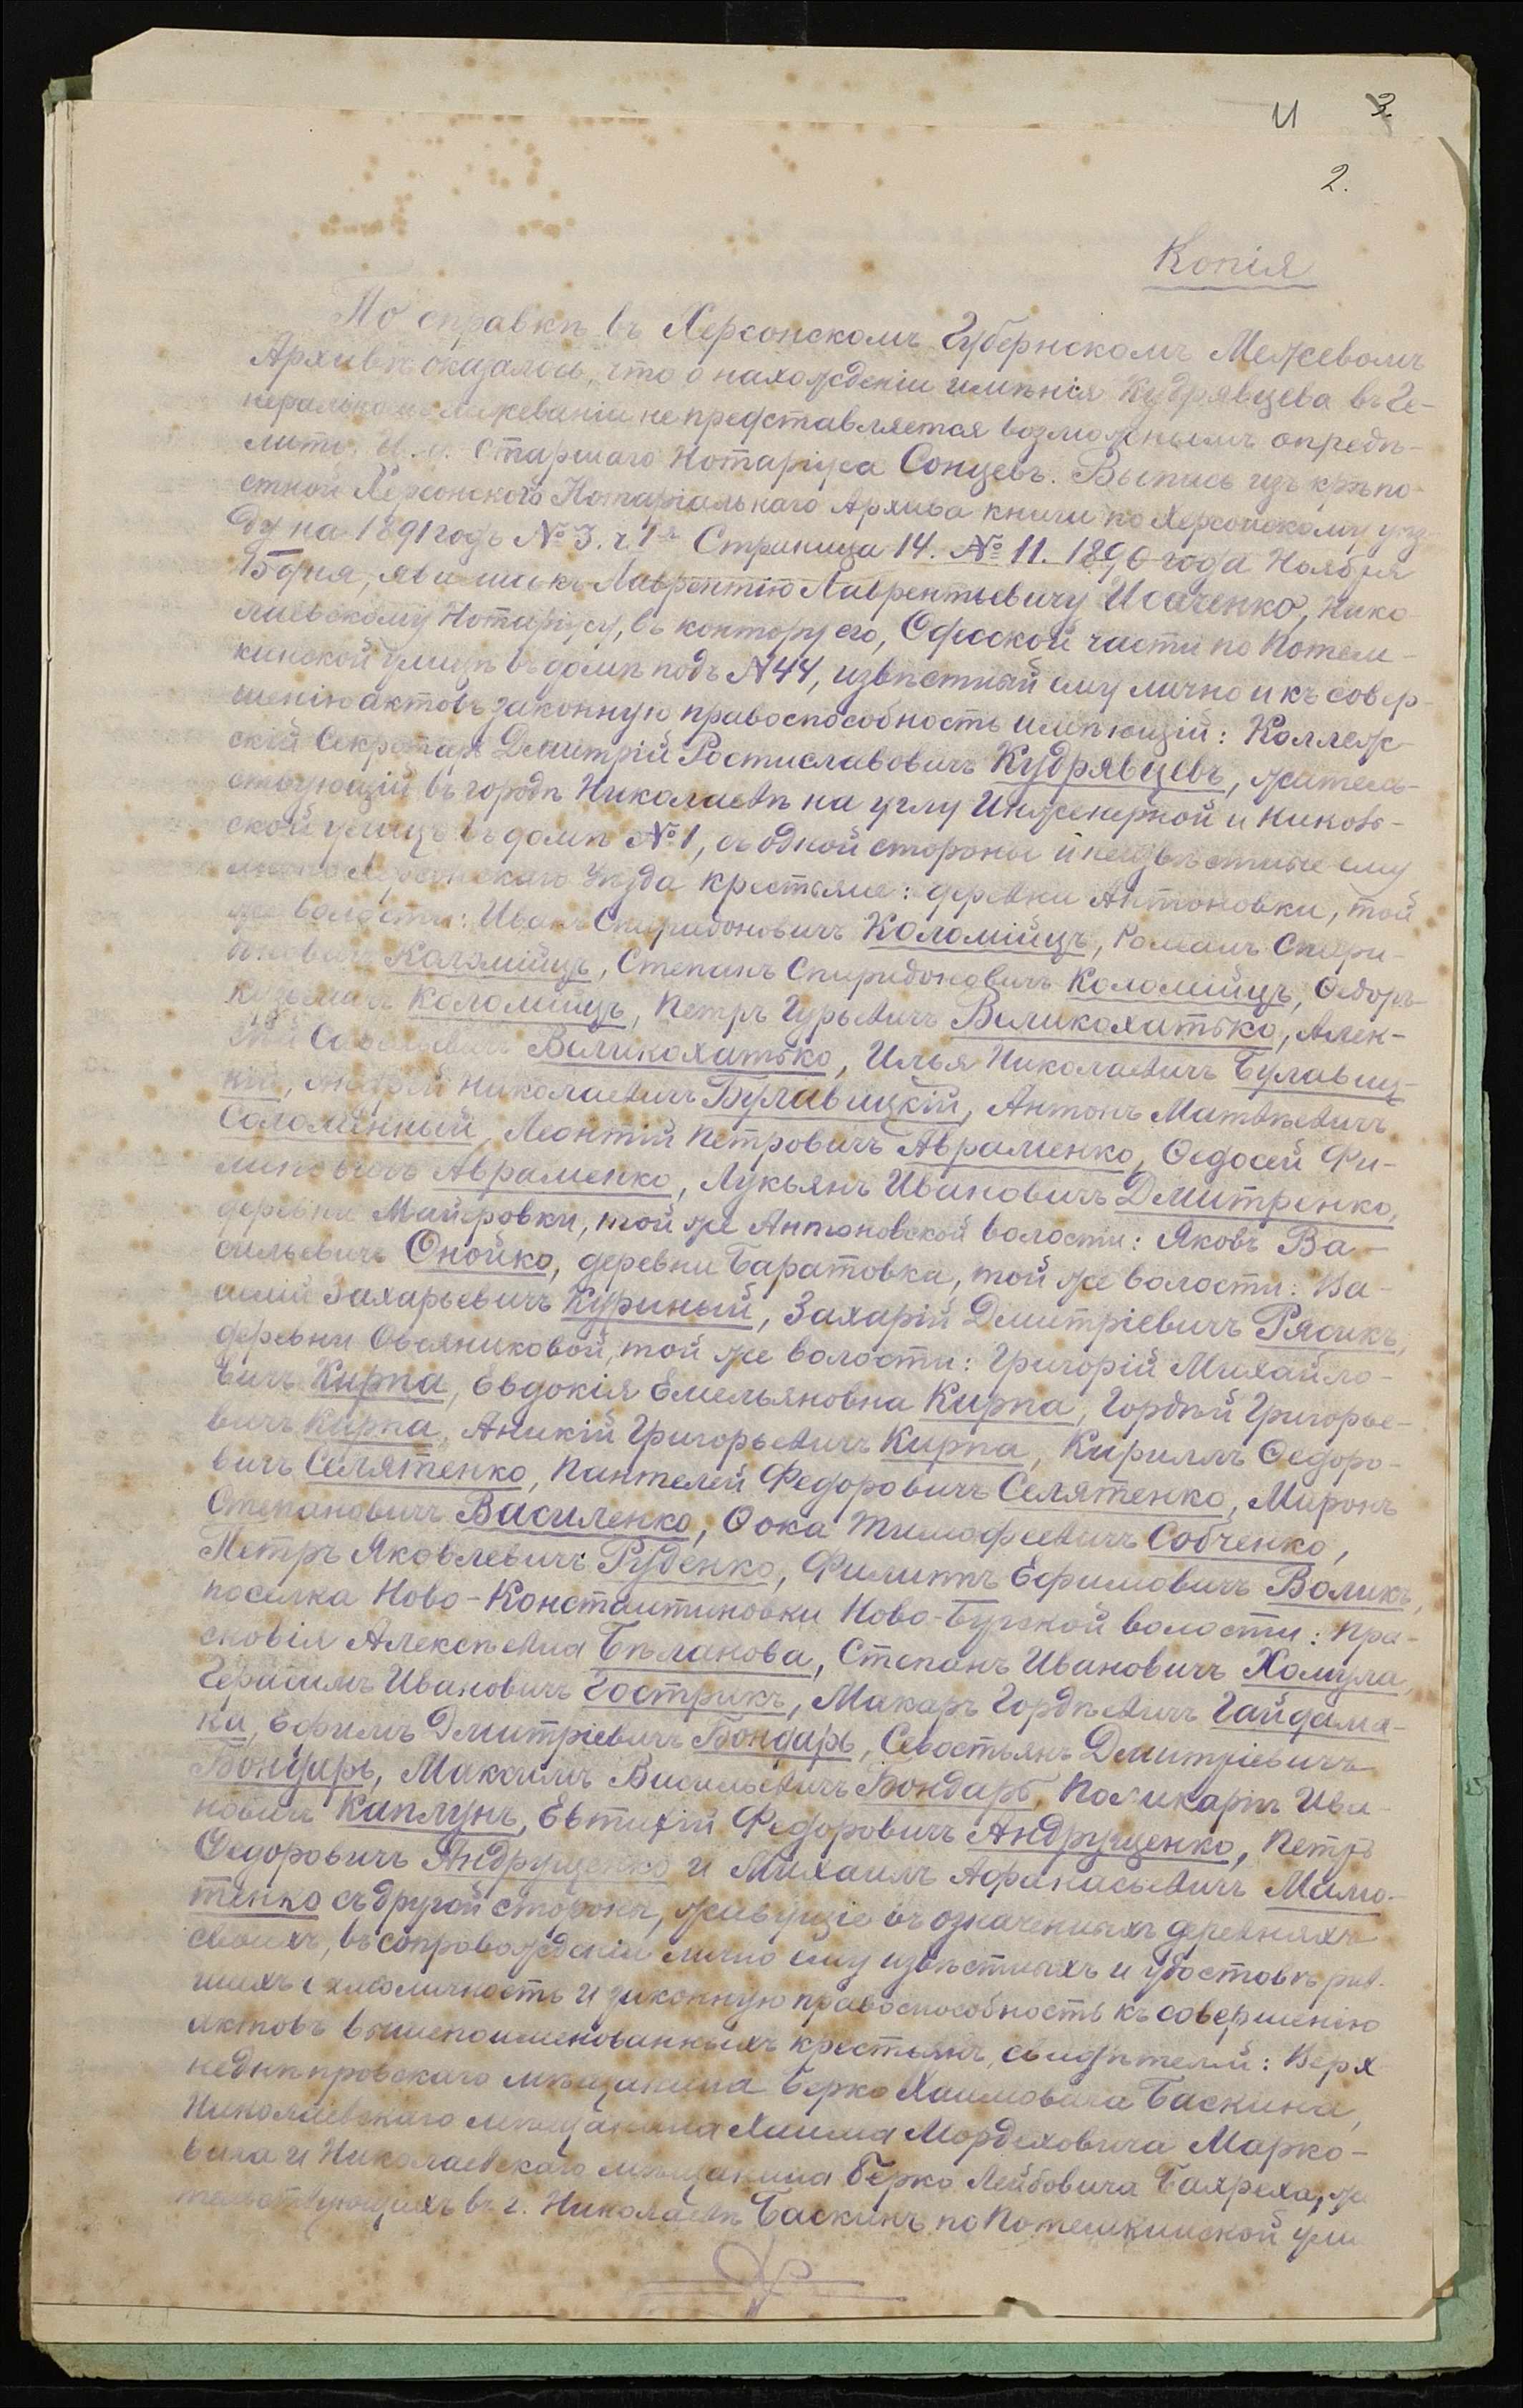 И 3.
2.
Копія
По справкѣ въ Херсонскомъ Губернскомъ Межевомъ
Архивѣ оказалось, что о нахожденіи имѣнія Кудрявцева въ Ге-
неральномъ межеваніи не представляется возможнымъ опредѣ-
лить. И. д. Старшаго Нотаріуса Сонцевъ. Выпись изъ крѣпо-
стной Херсонскаго Нотаріальнаго Архива книги по Херсонскому уѣз
ду на 1891 годъ № 3. ч. 1я Страница 14. № 11. 1890 года Ноября
15 дня, явились къ Лаврентію Лаврентьевичу Исаченко, Нико
лаевскому Нотаріусу, въ контору его, Одесской части по Потем-
кинской улицѣ въ домѣ подъ № 44, извѣстный ему лично и къ совер-
шенію актовъ законную правоспособность имѣющій: Коллеж-
скій Секретарь Дмитрій Ростиславовичъ Кудрявцевъ, житель-
ствующій въ городѣ Николаевѣ на углу Инженерной и Никово-
ской улицъ въ домѣ № 1, съ одной стороны и неизвѣстные ему
лично Херсонскаго Уѣзда крестьяне: деревни Антоновки, той
же волости: Иванъ Спиридоновичъ Коломійцъ, Романъ Спири-
доновичъ Коломійцъ, Степанъ Спиридоновичъ Коломійцъ, Ѳедоръ
Кузьмичъ Коломійцъ, Петръ Гурьевичъ Великохатько, Алек-
сѣй Савельевичъ Великохатько, Илья Николаевичъ Булавиц-
кій, Андрей Николаевичъ Булавицкій, Антонъ Матвѣевичъ
Соломенный, Леонтій Петровичъ Авраменко, Ѳедосей Фи-
липовичъ Авраменко, Лукьянъ Ивановичъ Дмитренко,
деревни Майеровки, той же Антоновской волости: Яковъ Ва-
сильевичъ Онойко, деревни Баратовка, той же волости: Ва-
силій Захарьевичъ Куриный, Захарій Дмитріевичъ Рясикъ,
деревни Овсяниковой, той же волости: Григорій Михайло-
вичъ Кирпа, Евдокія Емельяновна Кирпа, Гордѣй Григорье-
вичъ Кирпа, Аникій Григорьевичъ Кирпа, Кириллъ Ѳедоро-
вичъ Селятенко, Пантелей Федоровичъ Селятенко, Миронъ
Степановичъ Василенко, Ѳока Тимофеевичъ Собченко,
Петръ Яковлевичъ Руденко, Филиппъ Ефимовичъ Воликъ,
поселка Ново-Константиновки Ново-Бугской волости: Пра-
сковія Алексѣевна Бѣланова, Степанъ Ивановичъ Хомула,
Герасимъ Ивановичъ Гострикъ, Макаръ Гордѣевичъ Гайдама-
ка, Ефимъ Дмитріевичъ Бондарь, Севостьянъ Дмитріевичъ
Бондарь, Максимъ Васильевичъ Бондарь, Поликарпъ Ива-
новичъ Каплунъ, Евтихій Федоровичъ Андрущенко, Петръ
Ѳедоровичъ Андрущенко и Михаилъ Афанасьевичъ Мамо-
тенко съ другой стороны, живущіе въ означенныхъ деревняхъ
своихъ, въ сопровожденіи лично ему извѣстныхъ и удостовѣрив-
шихъ самоличность и законную правоспособность къ совершенію
актовъ вышепоименованныхъ крестьянъ, свидѣтелей: Верх
недѣнпровскаго мѣщанина Берко Хаимовича Баскина,
Николаевскаго мѣщанина Хаима Мордеховича Марко-
вича и Николаевскаго мѣщанина Берко Лейбовича Баяреха, жи
тельствующихъ въ г. Николаевѣ Баскинъ по Потемкинской ули